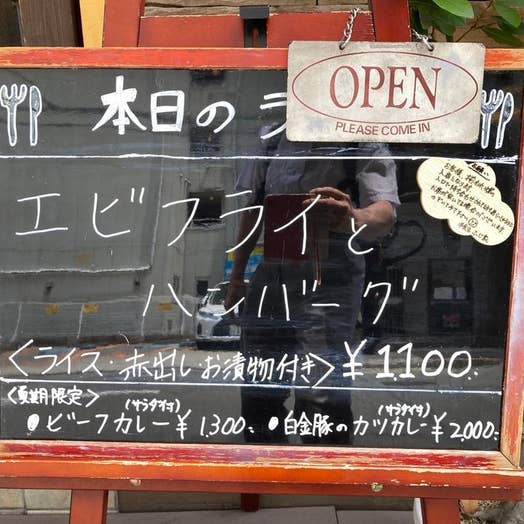 OPEN
PLEASE COME IN
本日のラ
エビフライと
ハンバーグ
〈ライス・赤出し お漬物付き〉¥1,100.
〈夏期限定〉
●ビーフカレー(サラダ付)¥1,300. ●白金豚のカツカレー(サラダ付)¥2,000.